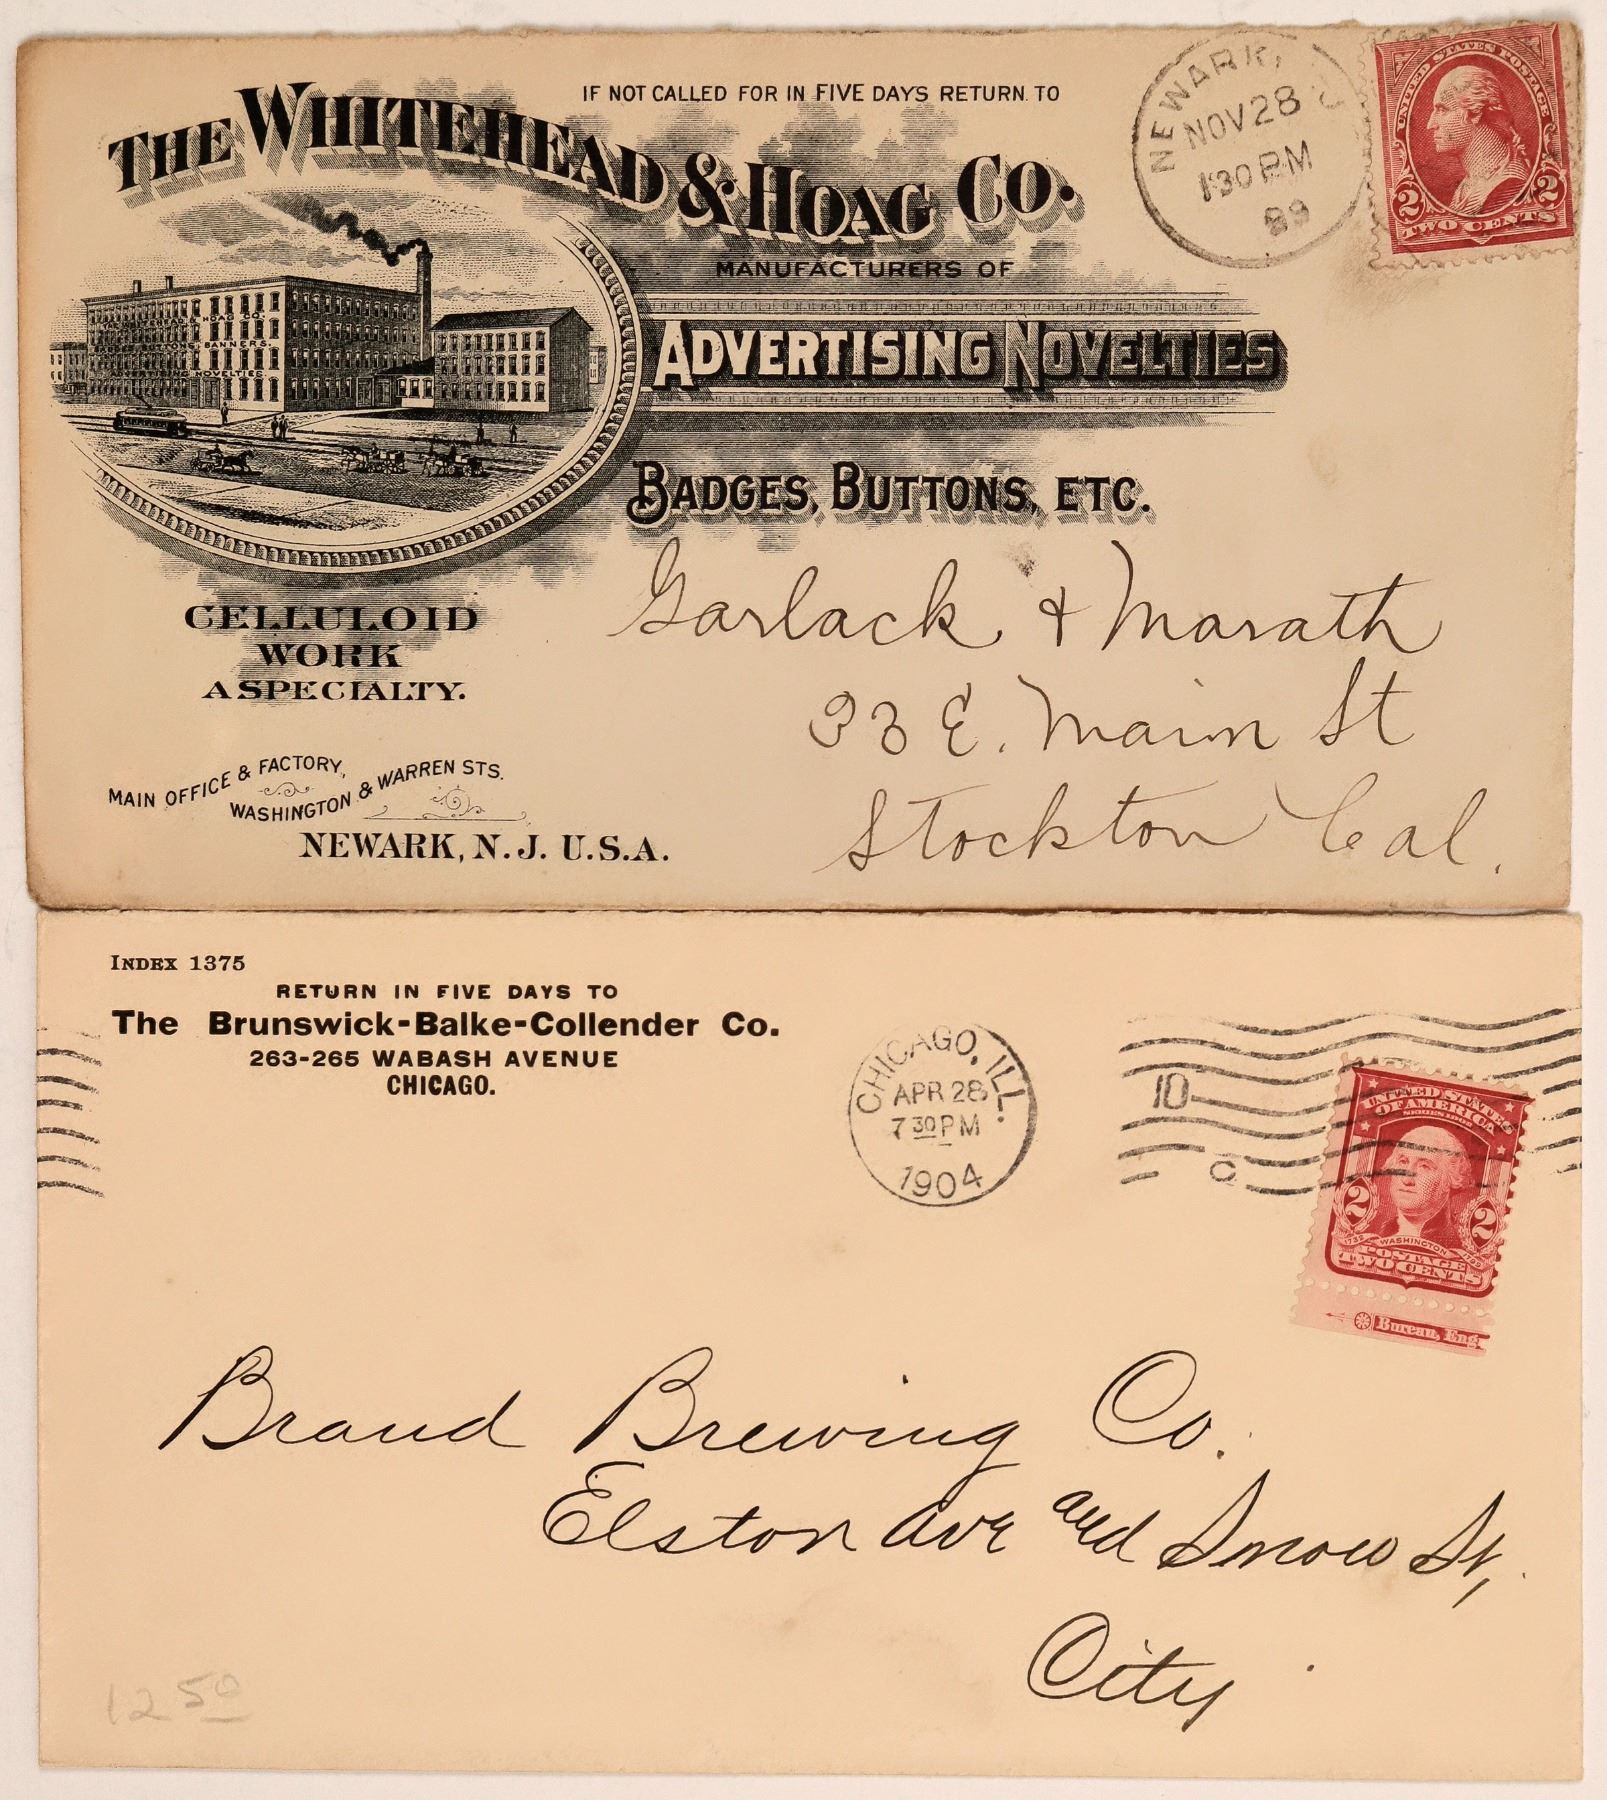 IF NOT CALLED FOR IN FIVE DAYS RETURN TO
THE WHITEHEAD & HOAG CO.
MANUFACTURERS OF
ADVERTISING NOVELTIES
BADGES, BUTTONS, ETC.
THE WHITEHEAD & HOAG CO.
BUTTONS. BANNERS.
ADVERTISING NOVELTIES.
CELLULOID
WORK
A SPECIALTY.
MAIN OFFICE & FACTORY,
WASHINGTON & WARREN STS.
NEWARK, N.J. U.S.A.
NEWARK, J
NOV 28
1 30 PM
UNITED STATES POSTAGE
2 2
TWO CENTS
Garlack & Marath
33 E. Main St
Stockton Cal.
INDEX 1375
RETURN IN FIVE DAYS TO
The Brunswick-Balke-Collender Co.
263-265 WABASH AVENUE
CHICAGO.
CHICAGO, ILL.
APR 28
7 30 PM
1904
10
C
UNITED STATES
OF AMERICA
SERIES 1902
2 2
1732 WASHINGTON 1799
POSTAGE
TWO CENTS
Bureau, Eng
Brand Brewing Co.
Elston Ave and Snow St,
City
12 50